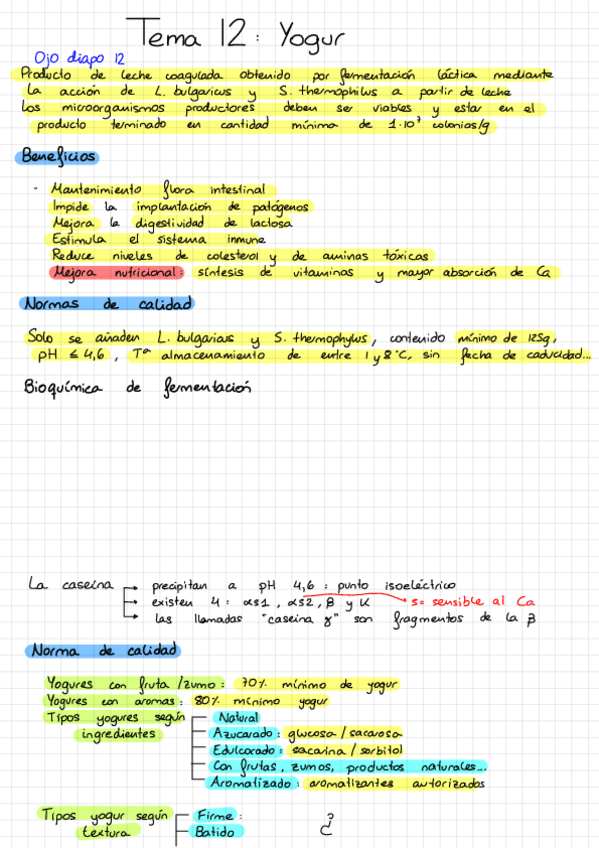 Tema 12: Yogur
Ojo diapo 12
Producto de leche coagulada obtenido por fermentación láctica mediante
la acción de L. bulgaricus y S. thermophilus a partir de leche
Los microorganismos productores deben ser viables y estar en el
producto terminado en cantidad mínima de 1·10⁷ colonias/g
Beneficios
- Mantenimiento flora intestinal
Impide la implantación de patógenos
Mejora la digestividad de lactosa
Estimula el sistema inmune
Reduce niveles de colesterol y de aminas tóxicas
Mejora nutricional: síntesis de vitaminas y mayor absorción de Ca
Normas de calidad
Solo se añaden L. bulgaricus y S. thermophylus, contenido mínimo de 125g,
pH ≤ 4,6, Tª almacenamiento de entre 1 y 8°C, sin fecha de caducidad...
Bioquímica de fermentación
La caseína → precipitan a pH 4,6: punto isoeléctrico
→ existen 4: αs1, αs2, β y K → s= sensible al Ca
→ las llamadas "caseína γ" son fragmentos de la β
Norma de calidad
Yogures con fruta/zumo: 70% mínimo de yogur
Yogures con aromas: 80% mínimo yogur
Tipos yogures según ingredientes
Natural
Azucarado: glucosa/sacarosa
Edulcorado: sacarina/sorbitol
Con frutas, zumos, productos naturales...
Aromatizado: aromatizantes autorizados
Tipos yogur según textura
Firme:
Batido
¿